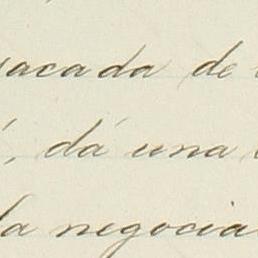 sacada de
, dá una
la negocia